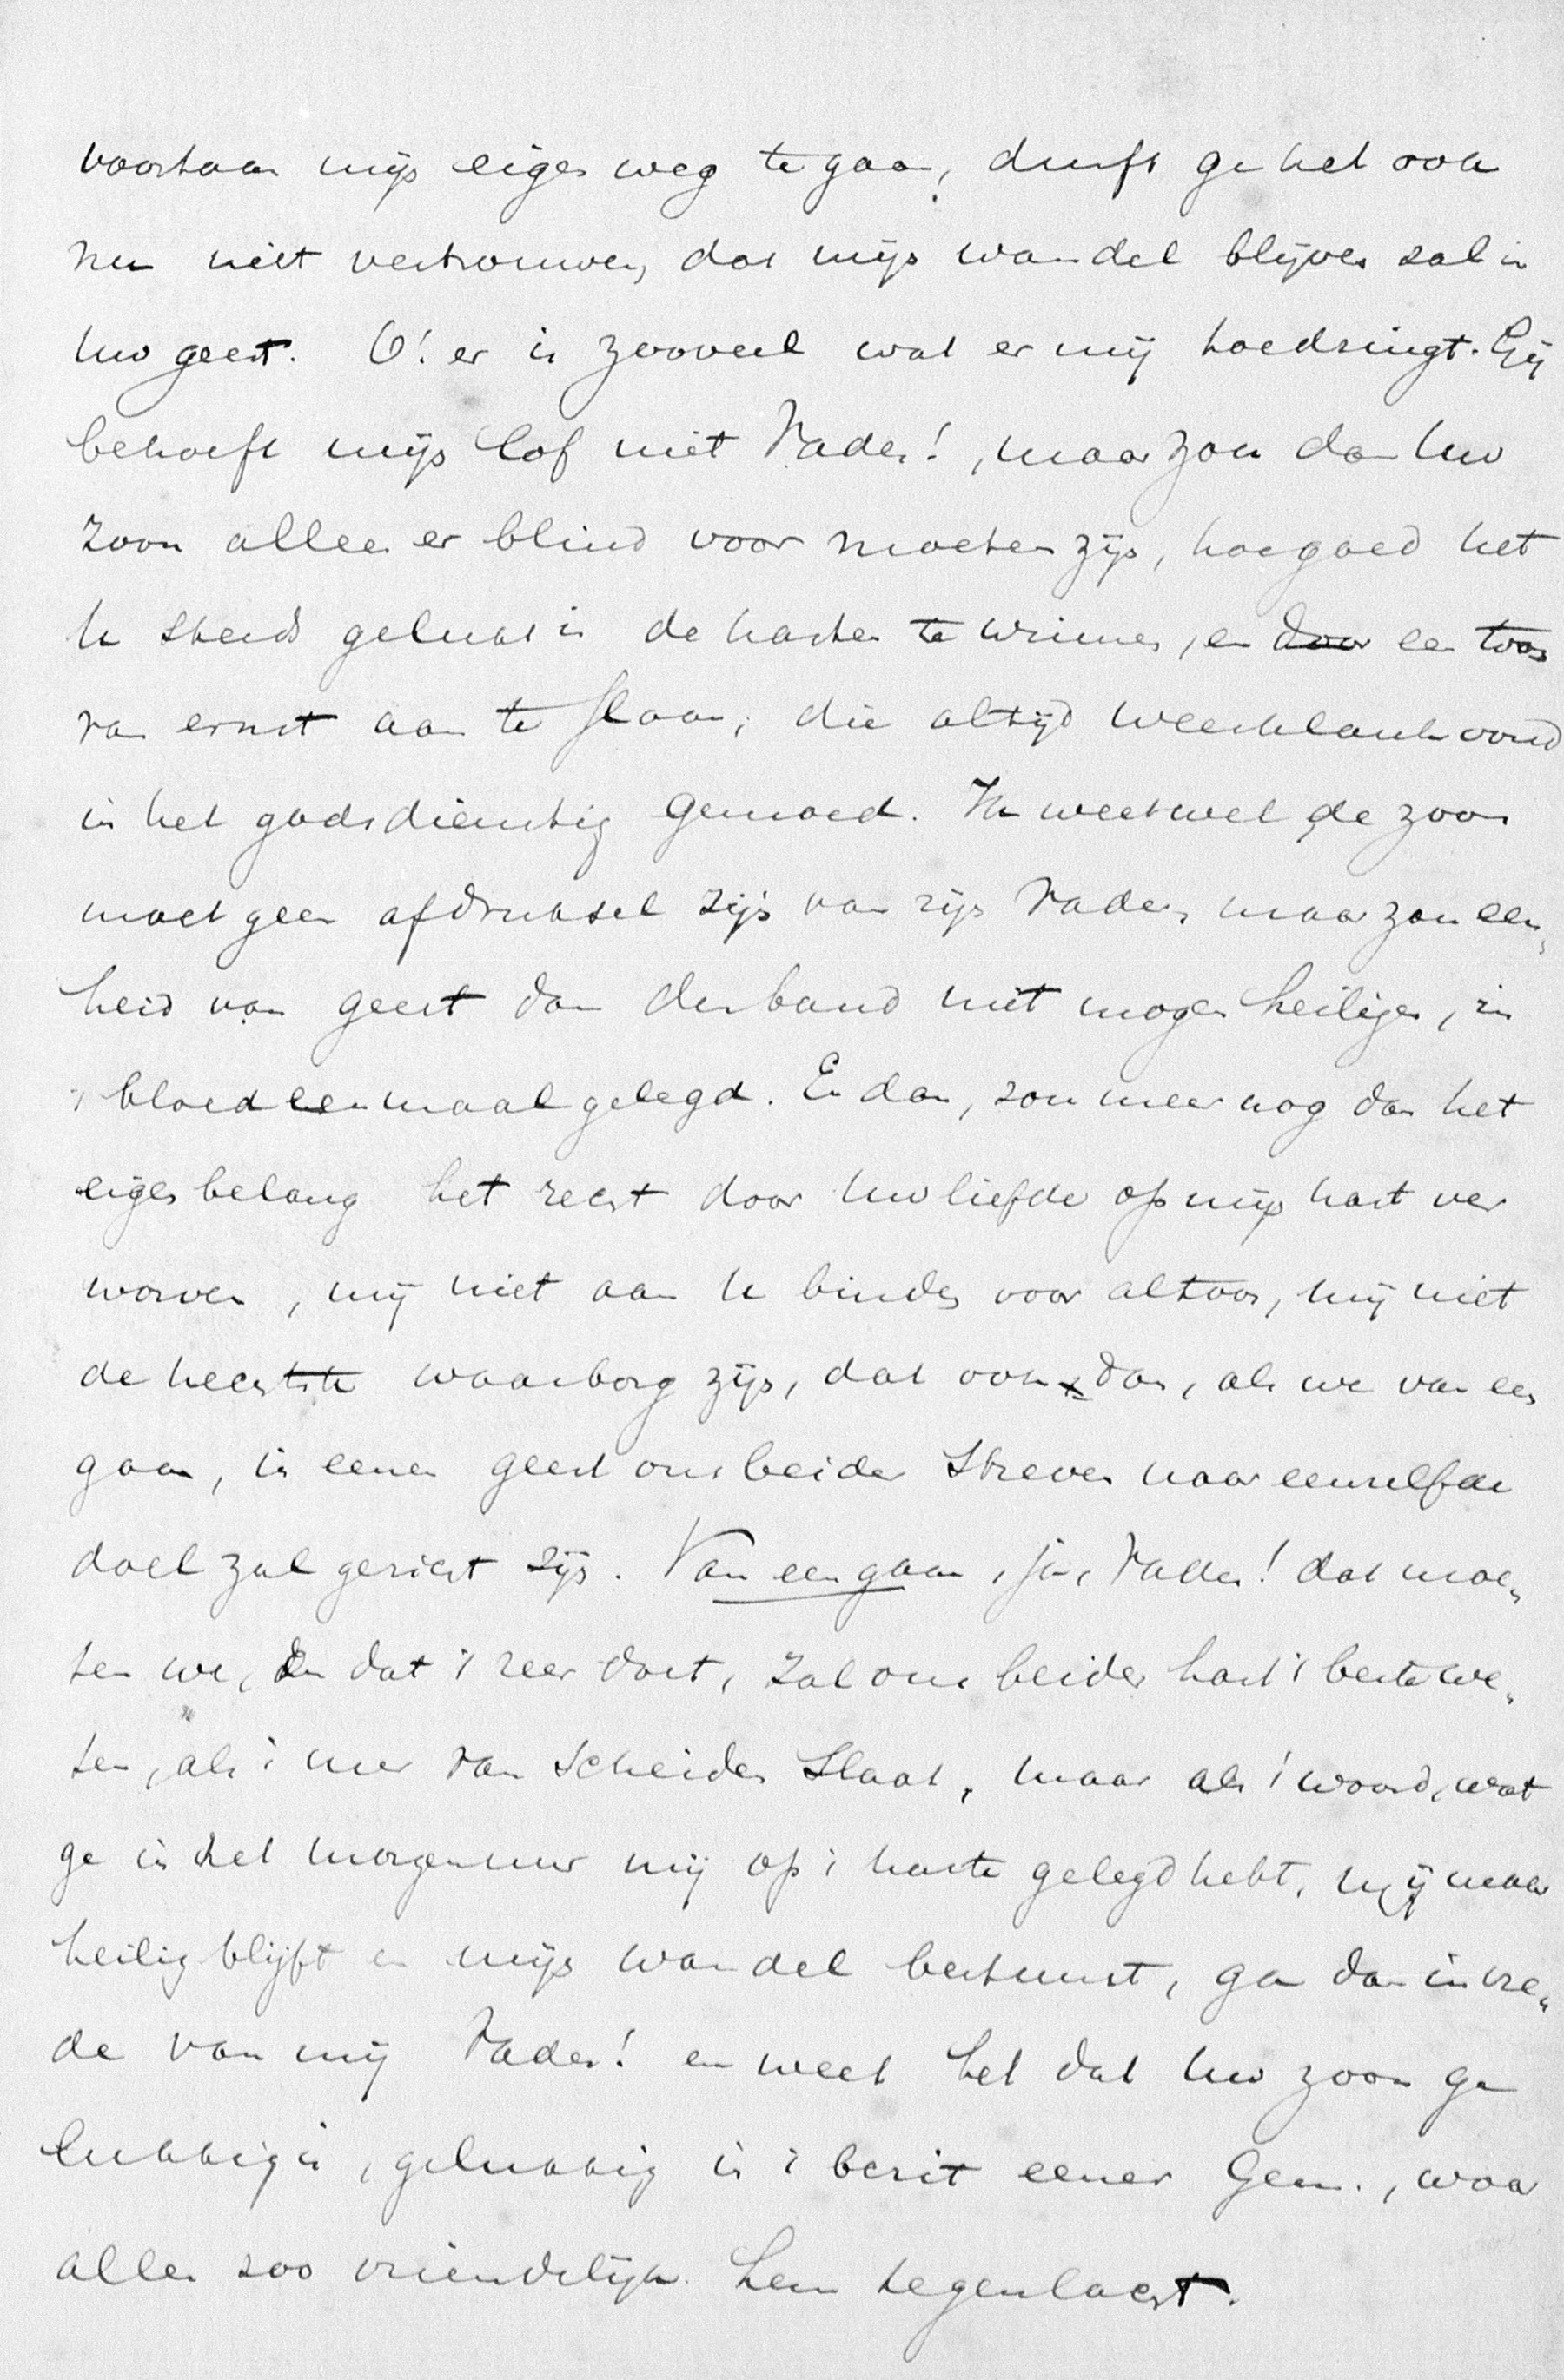 voortaan mijn eigen weg te gaan, durft ge het ook
nu niet vertrouwen, dat mijn wandel blijven zal in
Uw geest. O! er is zooveel wat er mij toedringt. Gij
behoeft mijn lof niet Vader!, maar zou dan Uw
zoon alleen er blind voor moeten zijn, hoe goed het
U steeds gelukt is de harten te winnen, en door een toon
van ernst aan te slaan, die altijd weerklank vond
in het godsdienstig gemoed. Ik weet wel de zoon
moet geen afdruksel zijn van zijn Vader, maar zou een„
heid van geest dan den band niet mogen heiligen, in
't bloed eenmaal gelegd. En dan, zou meer nog dan het
eigen belang het recht door Uw liefde op mijn hart ver
worven, mij niet aan U binden voor altoos, mij niet
de hechtste waarborg zijn, dat ook dan, als we van een
gaan, in eenen geest ons beider streven naar eenzelfde
doel zal gericht zijn. Van een gaan, ja, Vader! dat moe„
ten we, En dat 't zeer doet, zal ons beider hart 't beste we„
ten, als 't uur van scheiden slaat, maar als 't woord, wat
ge in het morgenuur mij op 't harte gelegd hebt, mij maar
heilig blijft en mijn wandel bestuurt, ga dan in vre„
de van mij Vader! en weet het dat Uw zoon ge
lukkig is, gelukkig in 't bezit eener Gem., waar
allen zoo vriendelijk hem tegenlacht.